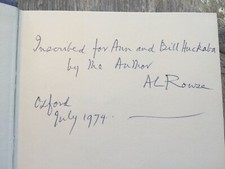 Inscribed for Ann and Bill Huckaba
by the Author
A L Rowse
Oxford
July 1974.